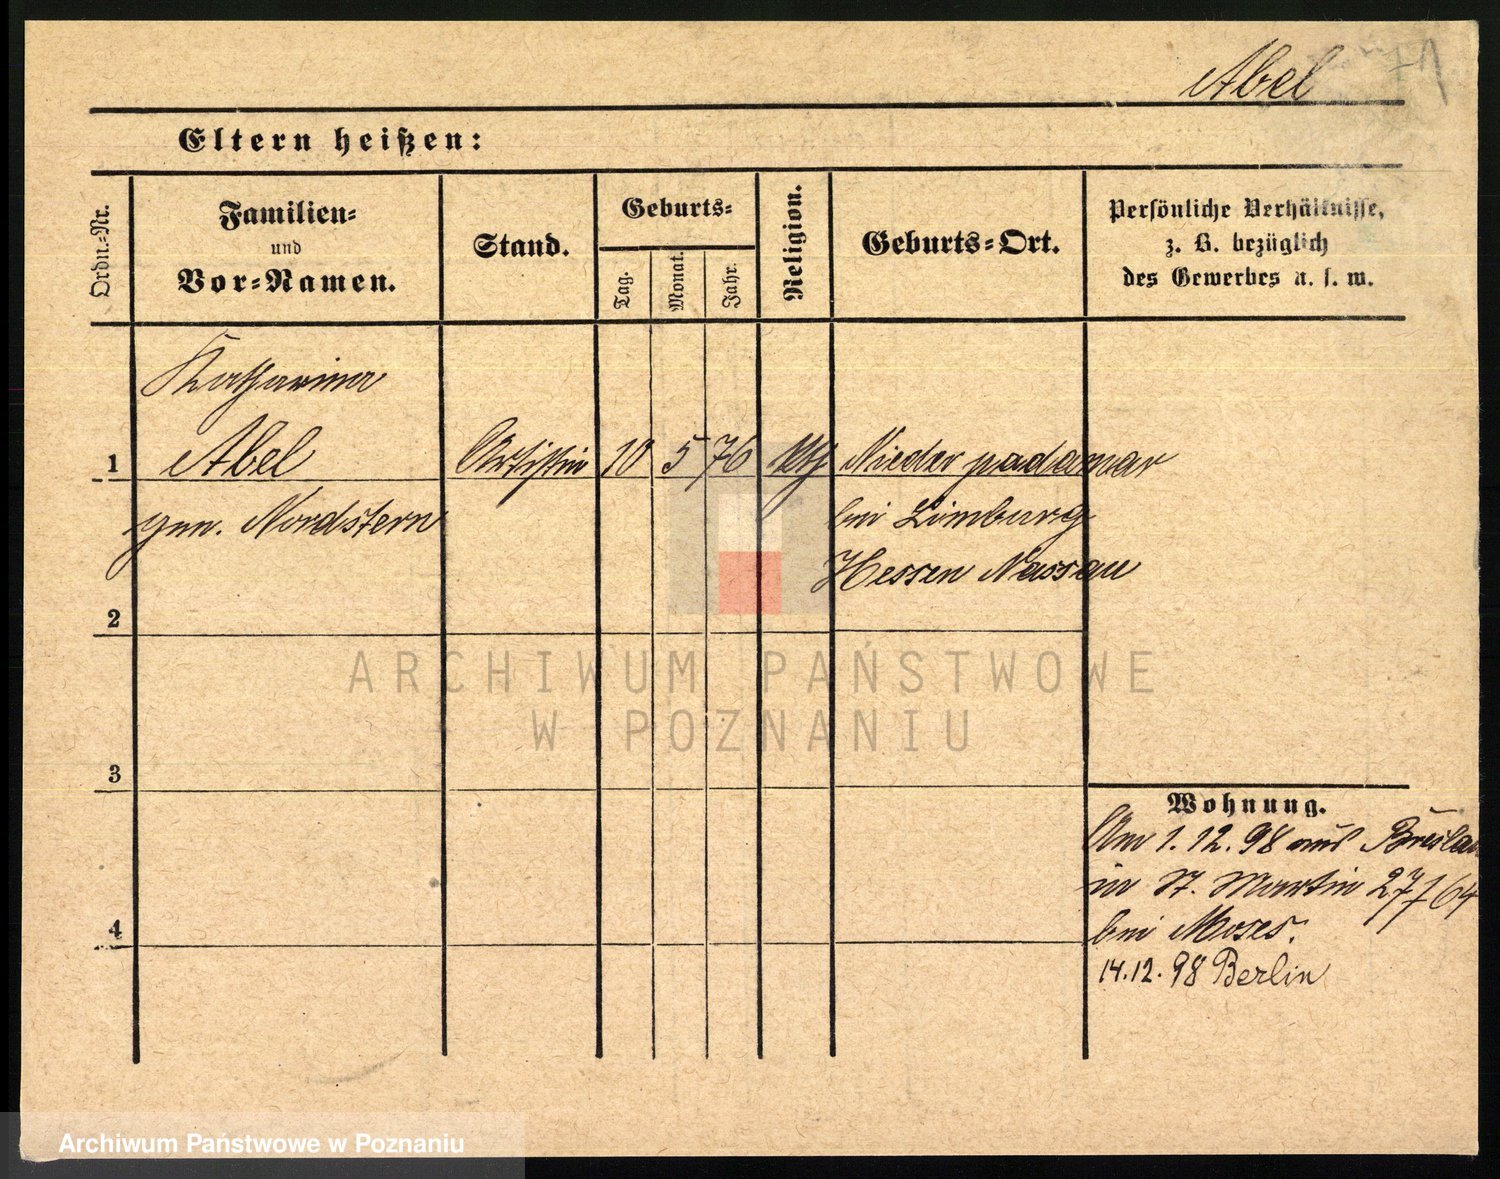 Abel
Eltern heißen:
Ordn.-Nr.
Familien-
und
Vor-Namen.
Stand.
Geburts-
Tag.
Monat.
Jahr.
Religion.
Geburts-Ort.
Persönliche Verhältnisse,
z. B. bezüglich
des Gewerbes u. s. w.
Katharina
1 Abel Artistin 10 5 76 kth Nieder padamar
gen. Nordstern bei Limburg
Hessen Nassau
2
ARCHIWUM PAŃSTWOWE
W POZNANIU
3
Wohnung.
Am 1.12.98 aus Breslau
in St. Martin 27/64
bei Moses.
4
14.12.98 Berlin
Archiwum Państwowe w Poznaniu